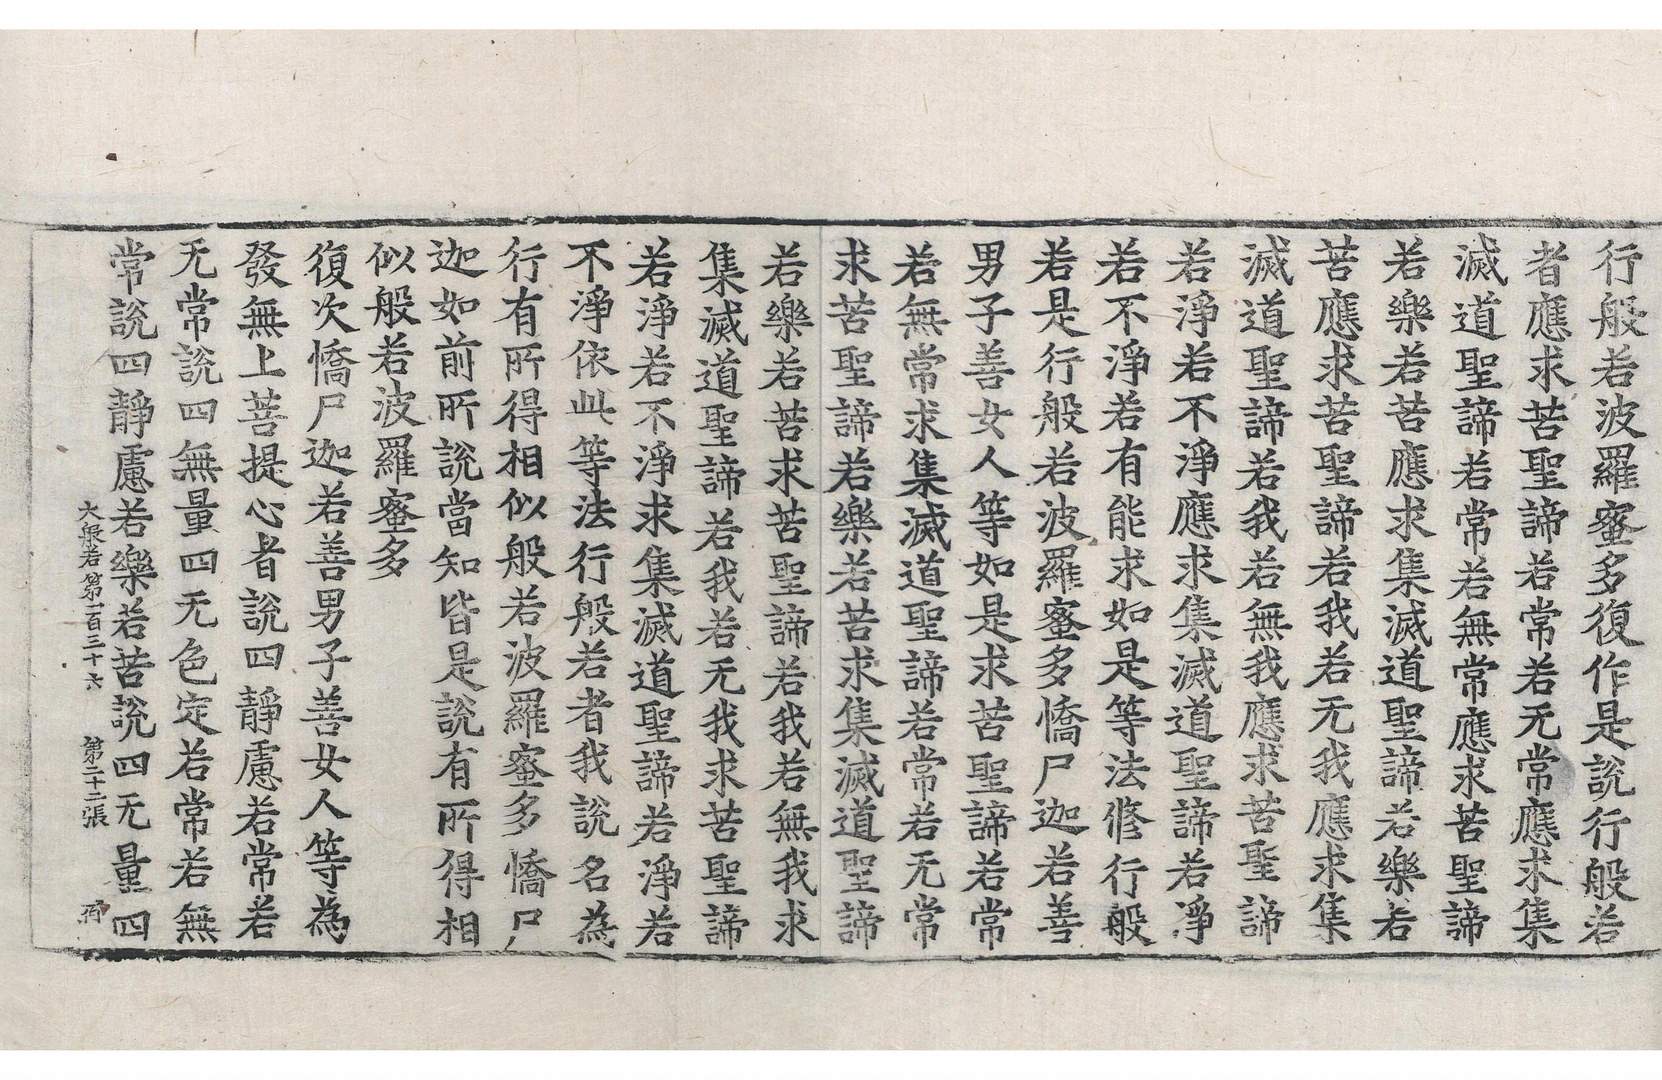 行般若波羅蜜多復作是說行般若
者應求苦聖諦若常若无常應求集
滅道聖諦若常若無常應求苦聖諦
若樂若苦應求集滅道聖諦若樂若
苦應求苦聖諦若我若无我應求集
滅道聖諦若我若無我應求苦聖諦
若淨若不淨應求集滅道聖諦若淨
若不淨若有能求如是等法修行般
若是行般若波羅蜜多憍尸迦若善
男子善女人等如是求苦聖諦若常
若無常求集滅道聖諦若常若无常
求苦聖諦若樂若苦求集滅道聖諦
若樂若苦求苦聖諦若我若無我求
集滅道聖諦若我若无我求苦聖諦
若淨若不淨求集滅道聖諦若淨若
不淨依此等法行般若者我說名為
行有所得相似般若波羅蜜多憍尸
迦如前所說當知皆是說有所得相
似般若波羅蜜多
復次憍尸迦若善男子善女人等為
發無上菩提心者說四靜慮若常若
无常說四無量四无色定若常若無
常說四靜慮若樂若苦說四无量四
大般若第一百三十六 第二十二張